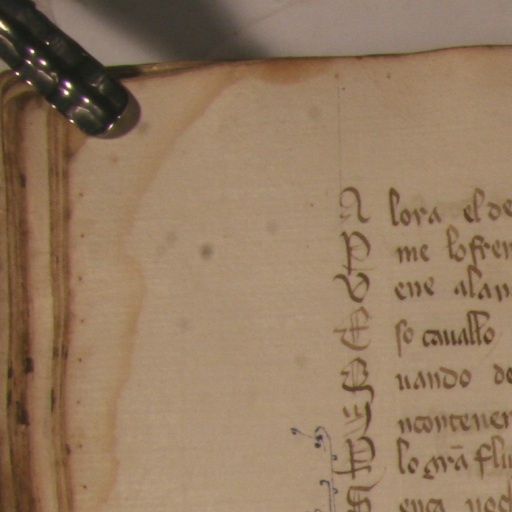 A lora el de
P me lo fren
V ene alan
E so cauallo
Q uando do
I ncontener
P lo grã flu
S enca